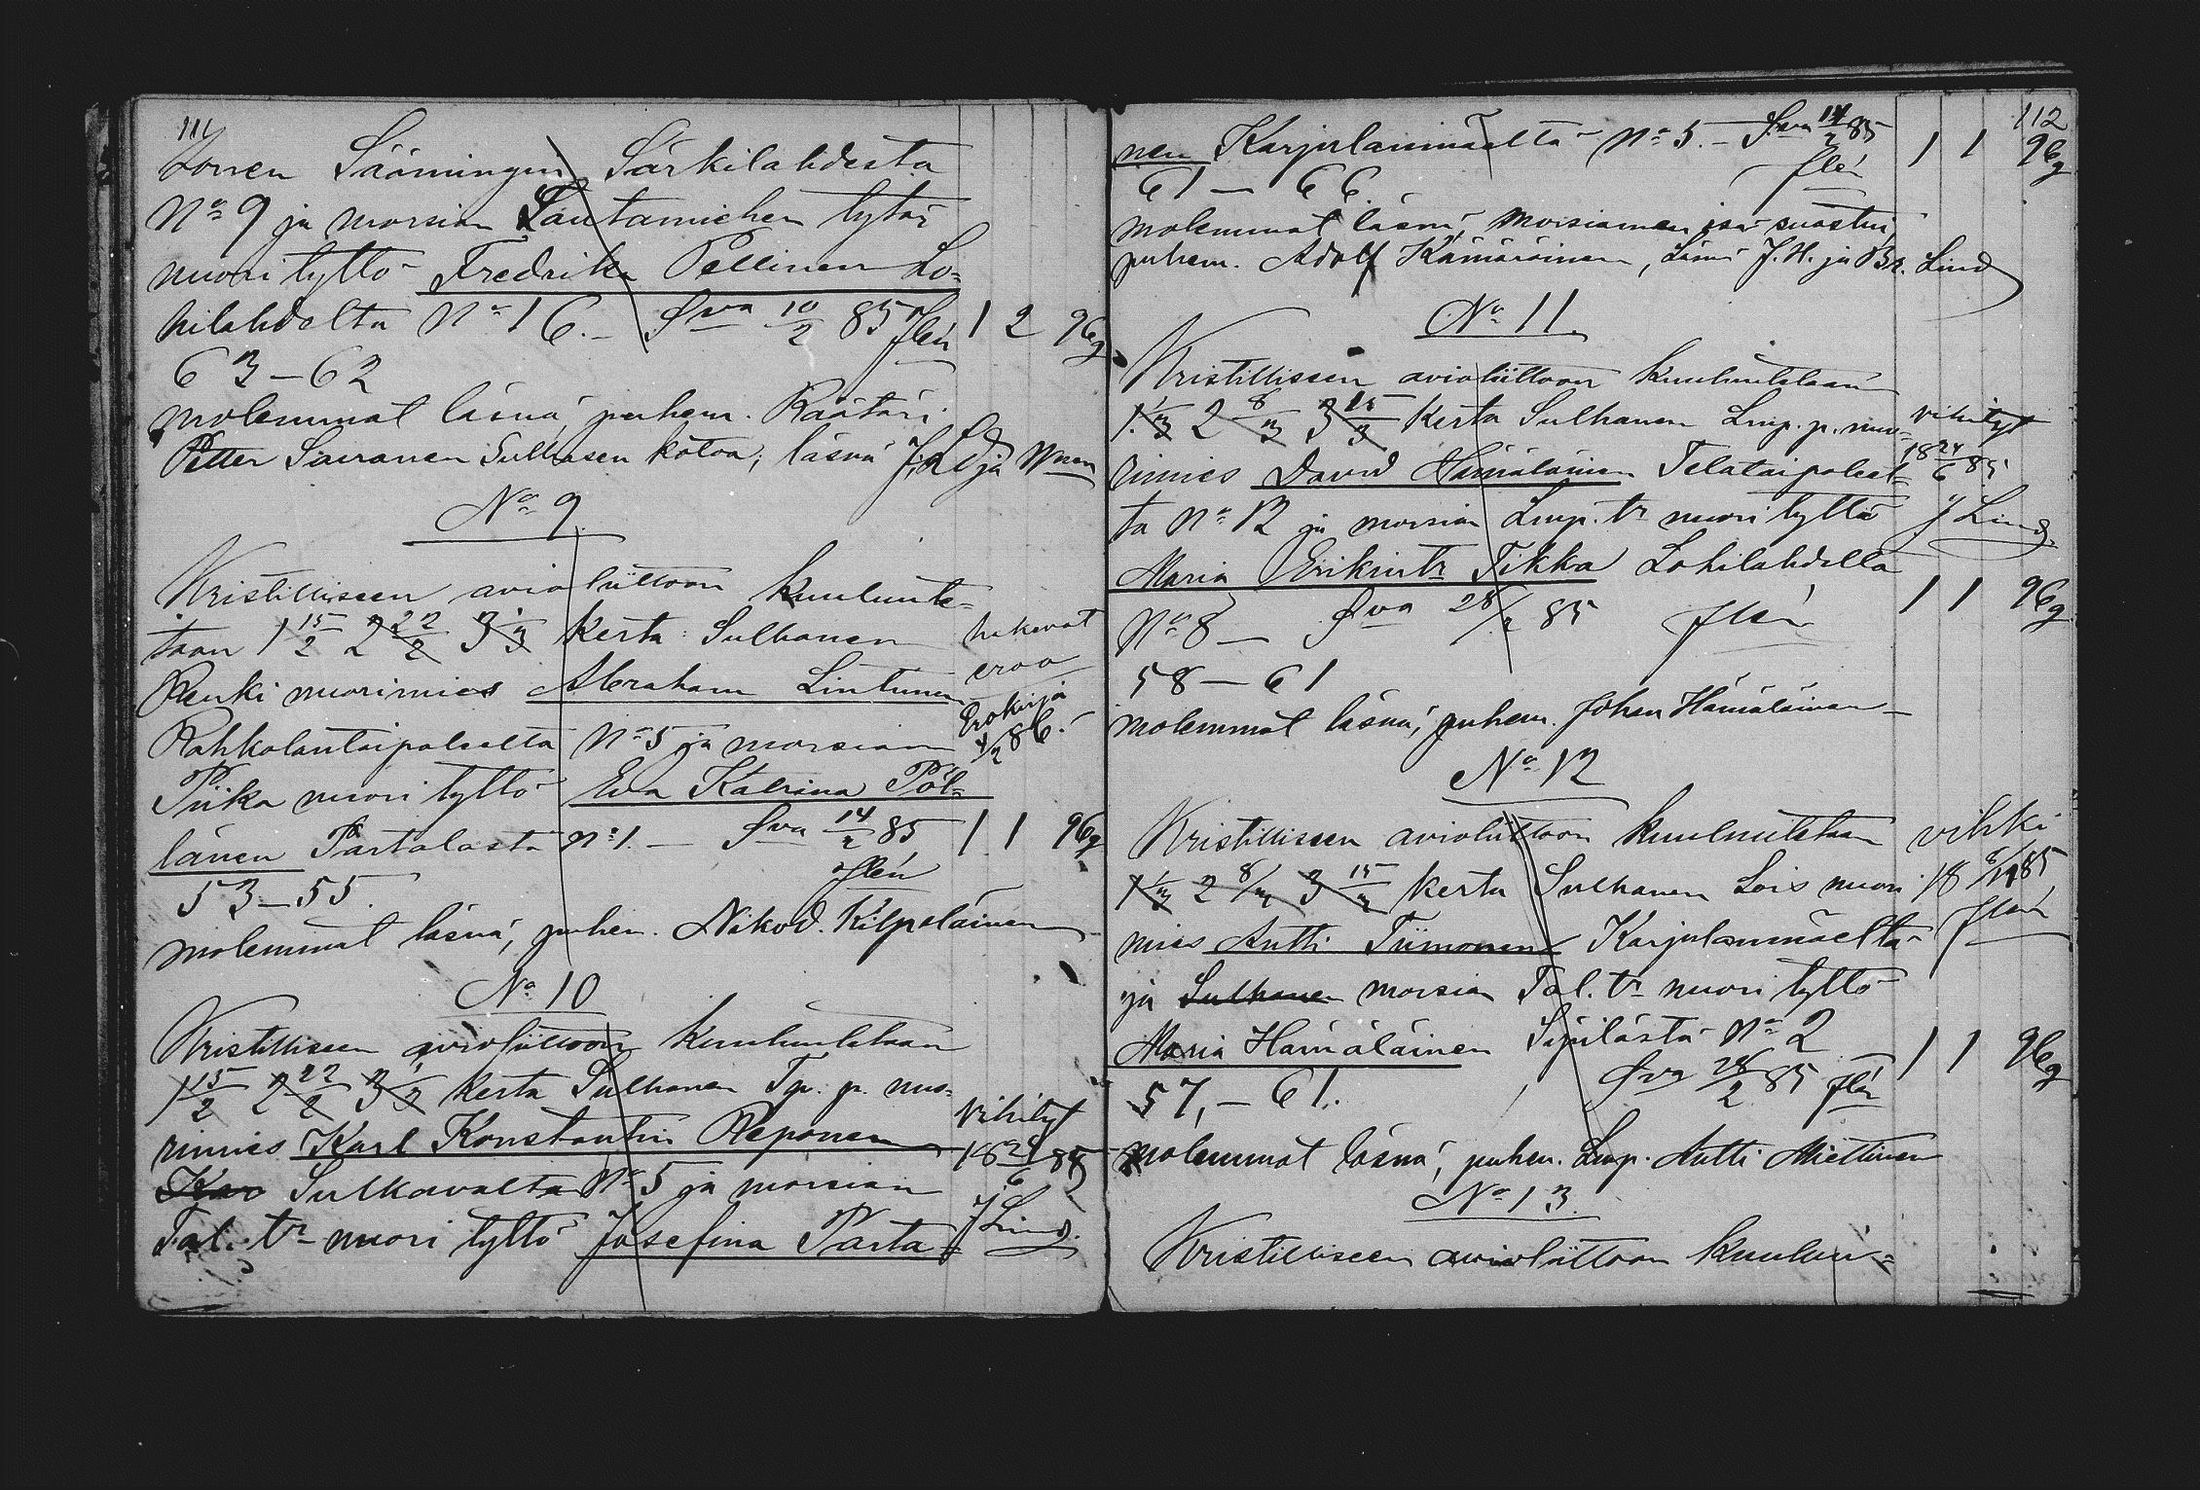 111
Säämingin Särkilahdesta
No 9 ja morsian Lautamiehen tytär
nuori tyttö Fredrika Pellinen Lo=
hilahdelta No 16. — Sva 10/2 85 1 2 96
63–62
molemmat läsnä, puhem. Räätäri
Petter Sairanen Sulhasen kotoa, läsnä
No 9.
Kristilliseen avioliittoon kuulute=
taan 1 15/2 2 22/2 3 1/3 kerta: Sulhanen hakevat
Renki nuorimies Abraham Lintunen eroa
Rahkolantaipaleelta No 5 ja morsian Erokirja 4/2 86.
Piika nuori tyttö Eva Katrina Pöl=
länen Partalasta No 1. — Sva 14/2 85 1 1 96
flén
53–55.
molemmat läsnä, puhem. Nikod. Kilpeläinen
No 10
Kristilliseen avioliittoon kuulutetaan
1 15/2 2 22/2 3 1/3 kerta Sulhanen Tp. p. nuo-
rimies Karl Konstantin Reponen vihityt
Sulkavalta No 5 ja morsian 18 24/6 85
Tal. tr nuori tyttö Josefina Parta= J Lind.
112
nen Karjulanmäeltä No 5. — Sva 14/2 85 1 1 96
flén
61 — 66
molemmat läsnä, morsiamen isä suostui,
puhem. Adolf Kämäräinen, Läsnä J. H. ja Lind
No 11.
Kristilliseen avioliittoon kuulutetaan
1 1/3 2 8/3 3 15/3 kerta Sulhanen Lmp. p. nuo- vihityt
rimies David Hämäläinen Telataipaleel= 18 24/6 85
ta No 12 ja morsian Lmp. tr nuori tyttö J Lind.
Maria Erikintr Tikka Lohilahdella
No 8 — Sva 28/2 85 flén 1 1 96
58 — 61
molemmat läsnä, puhem. Johan Hämäläinen —
No 12
Kristilliseen avioliittoon kuulutetaan vihki
1 1/3 2 8/3 3 15/3 kerta Sulhanen Lois nuori 18 85
mies Antti Tiimonen Karjulanmäeltä flén
ja Sulhanen morsian Tal. tr nuori tyttö
Maria Hämäläinen Sipilästä No 2
57, — 61. Sva 28/2 85 flén 1 1 96
molemmat läsnä, puhem. Lmp. Antti Miettinen
No 13.
Kristilliseen avioliittoon kuulu=